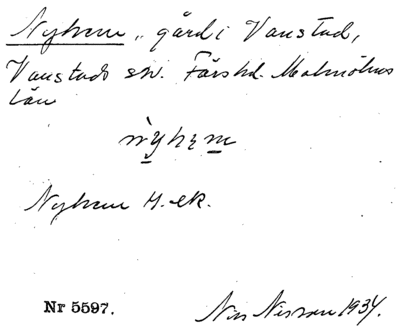 Nyhem, gård i Vanstad,
Vanstads sn. Färs hd. Malmöhus
län
nỳhem
Nyhem H. ek.
Nr 5597.
Nils Nilsson 1934.